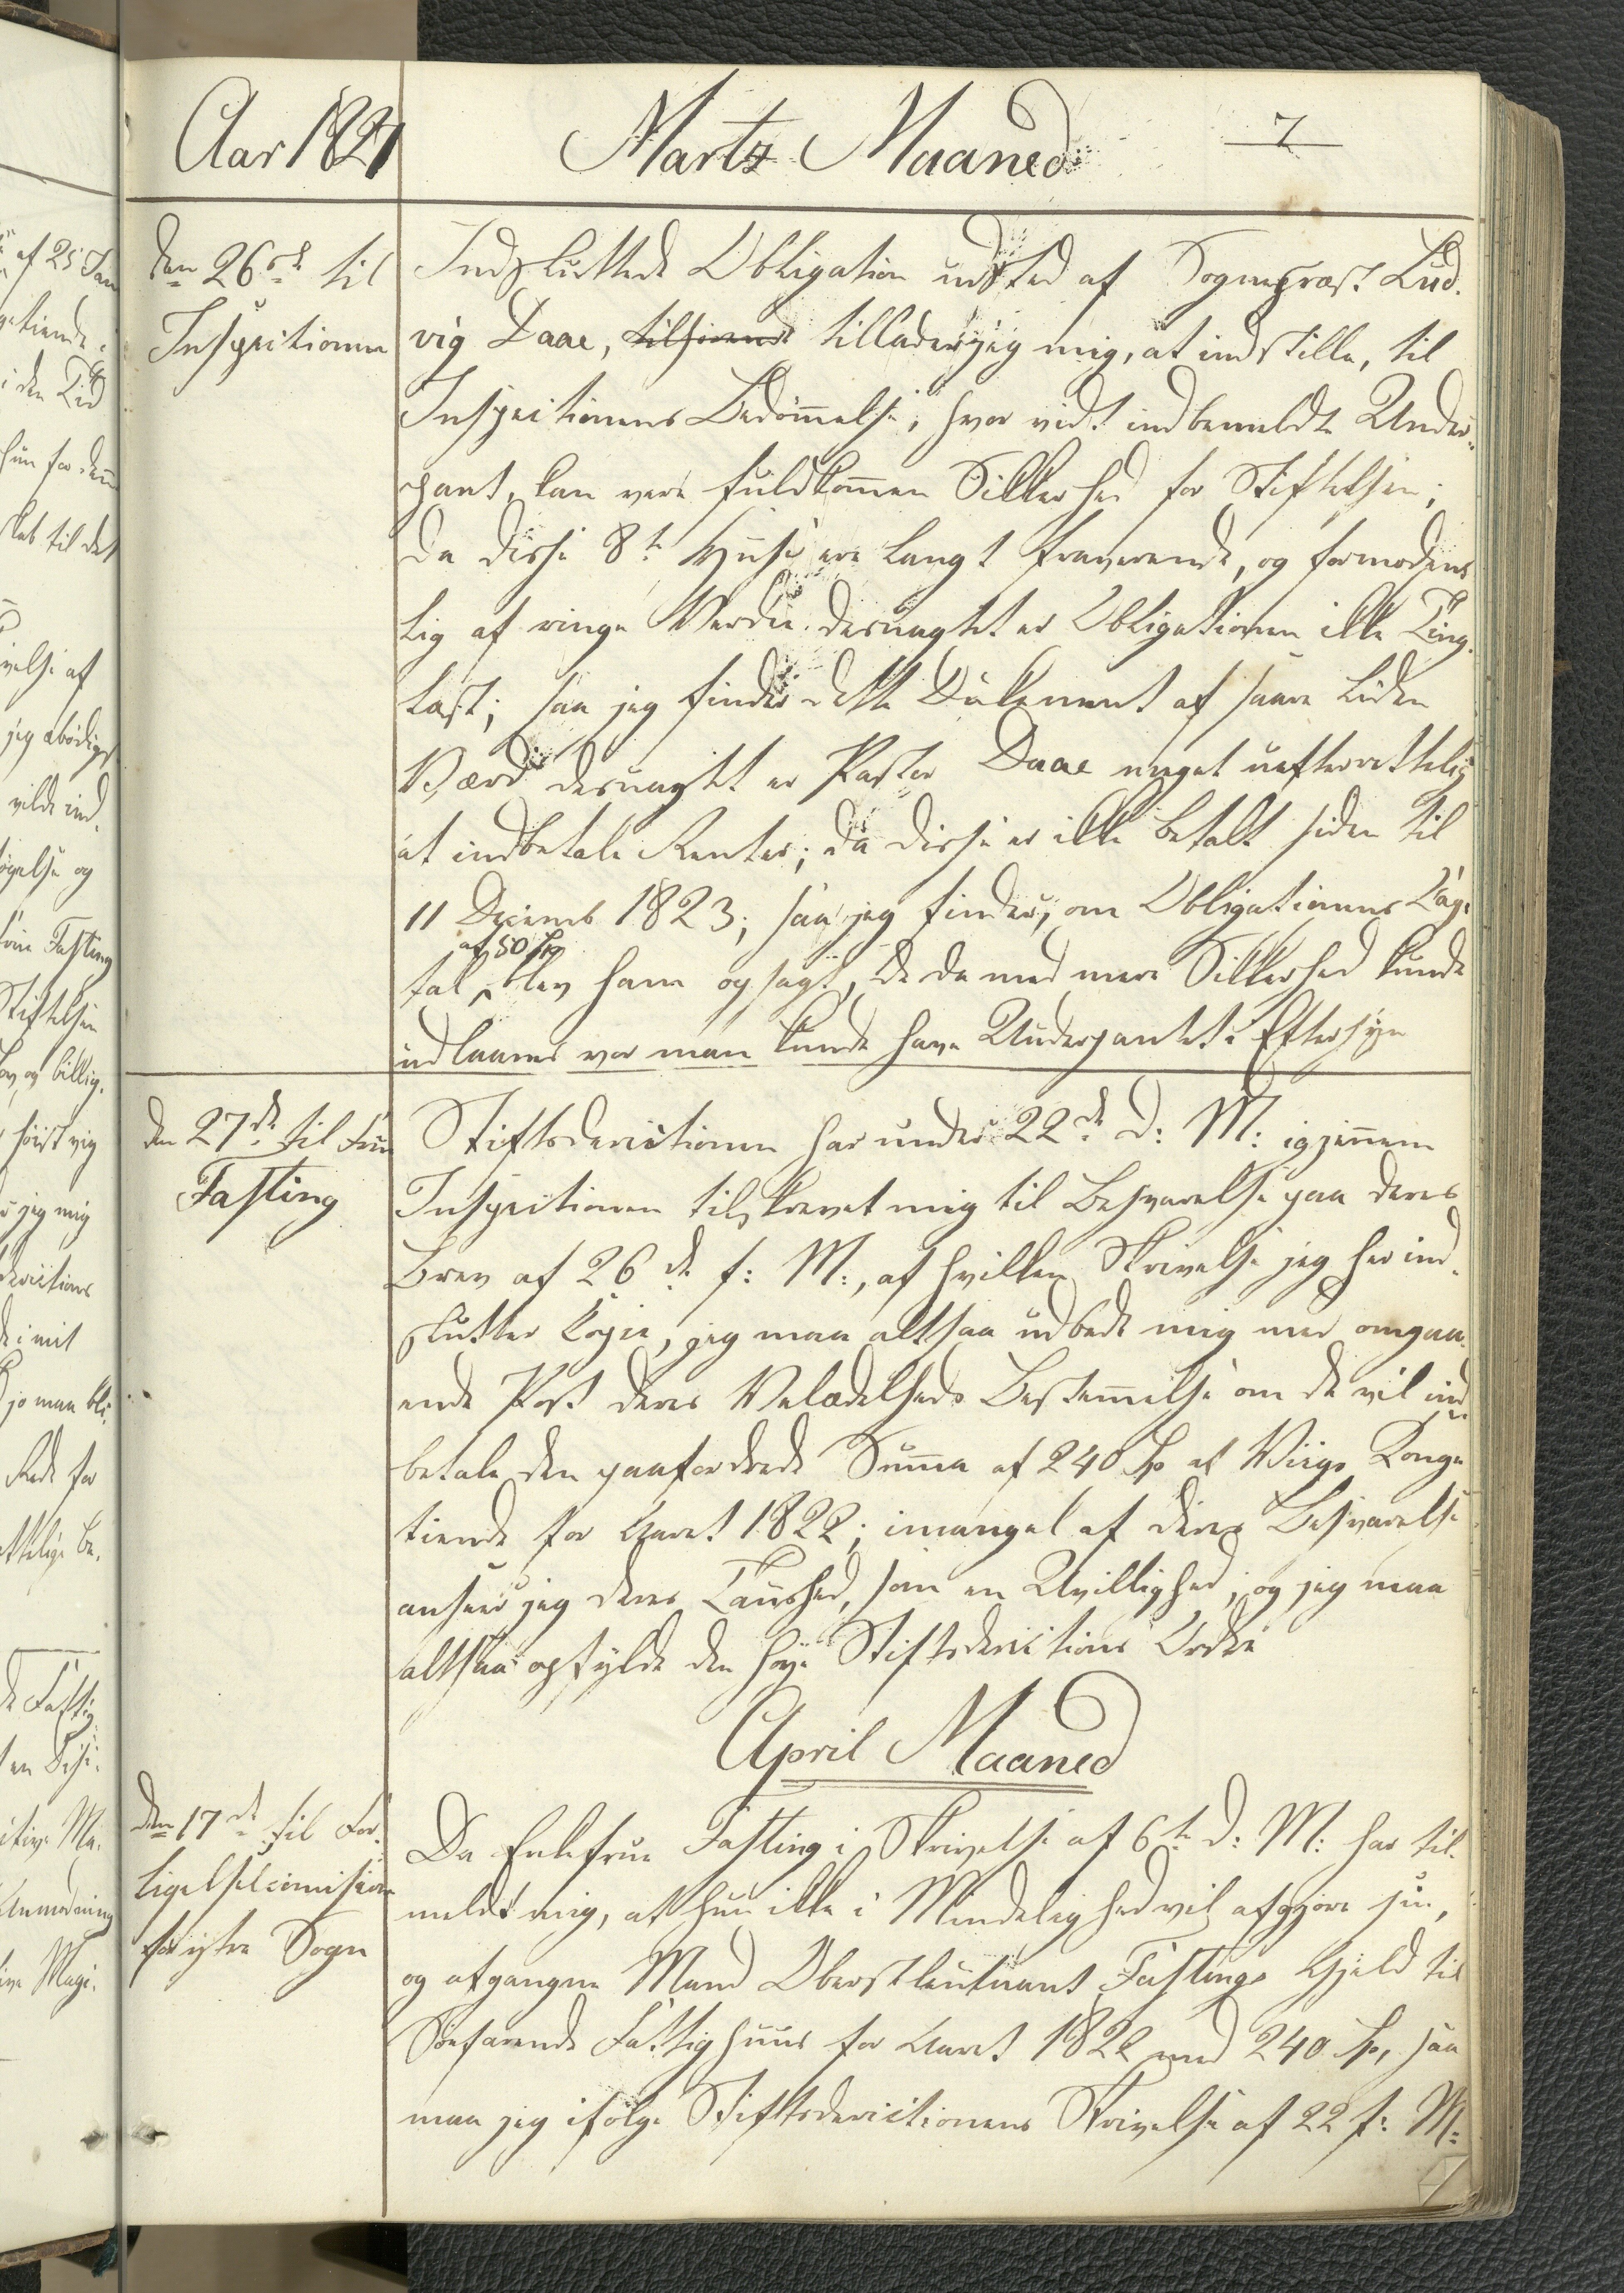 Aar 1827
Martz Maaned
7
den 26de til
Inspectionen
Indsluttede Obligation udsted af Sognepræst Lud-
vig Daae, tillader jeg mig, at indstille, til
Inspectionens Bedømmelse, hvor vidt indbemeldte Under-
pant, kan være fuldkommen Sikkerhed for Stiftelsen;
da disse 8te Huse ere langt fraværende, og formodent
lig af ringe Værdie. desuagtet er Obligationen ikke Ting-
læst; saa jeg finder dette Dokument af saare liden
Værd desuagtet er Pastor Daae meget uefterrettelig
at indbetale Renter; da disse er ikke betalt siden til
11 Decemb 1823; saa jeg finder, om Obligationens Cap.
af 50 Sp
tal, blev ham opsagt, de da med mere Sikkerhed kunde
udlaanes vor man kunde have Underpantet i Eftersyn
den 27de til Frue
Fasting
Stiftsdirectionen har under 22de d: M: igjennem
Inspectionen tilskrevet mig til Besvarelse paa deres
Brev af 26de f: M:, af hvilken Skrivelse jeg her ind-
slutter Copie, jeg maa altsaa udbede mig med omgaa-
ende Post deres Velædelheds Bestemmelse om de vil ind-
betale den paafordrede Summa af 240 Sp af Viigs Konge
tiende for Aaret 1822; imangel af deres Besvarelse
anseer jeg deres Taushed, som en Uvillighed; og jeg maa
altsaa opfylde den høye Stiftsdirections Ordre
April Maaned
den 17de til For-
ligelsescomission
for ytre Sogn
Da Enkefrue Fasting i Skrivelse af 6te d: M: har til-
meldt mig, at hun ikke i Mindelighed vil afgjøre sin,
og afgangne Mand Oberstleutnant Fastings Gjeld til
Søefarende Fattighuus for Aaret 1822 med 240 Sp, saa
maa jeg ifølge Stiftsdirectionens Skrivelse af 22 f: M: